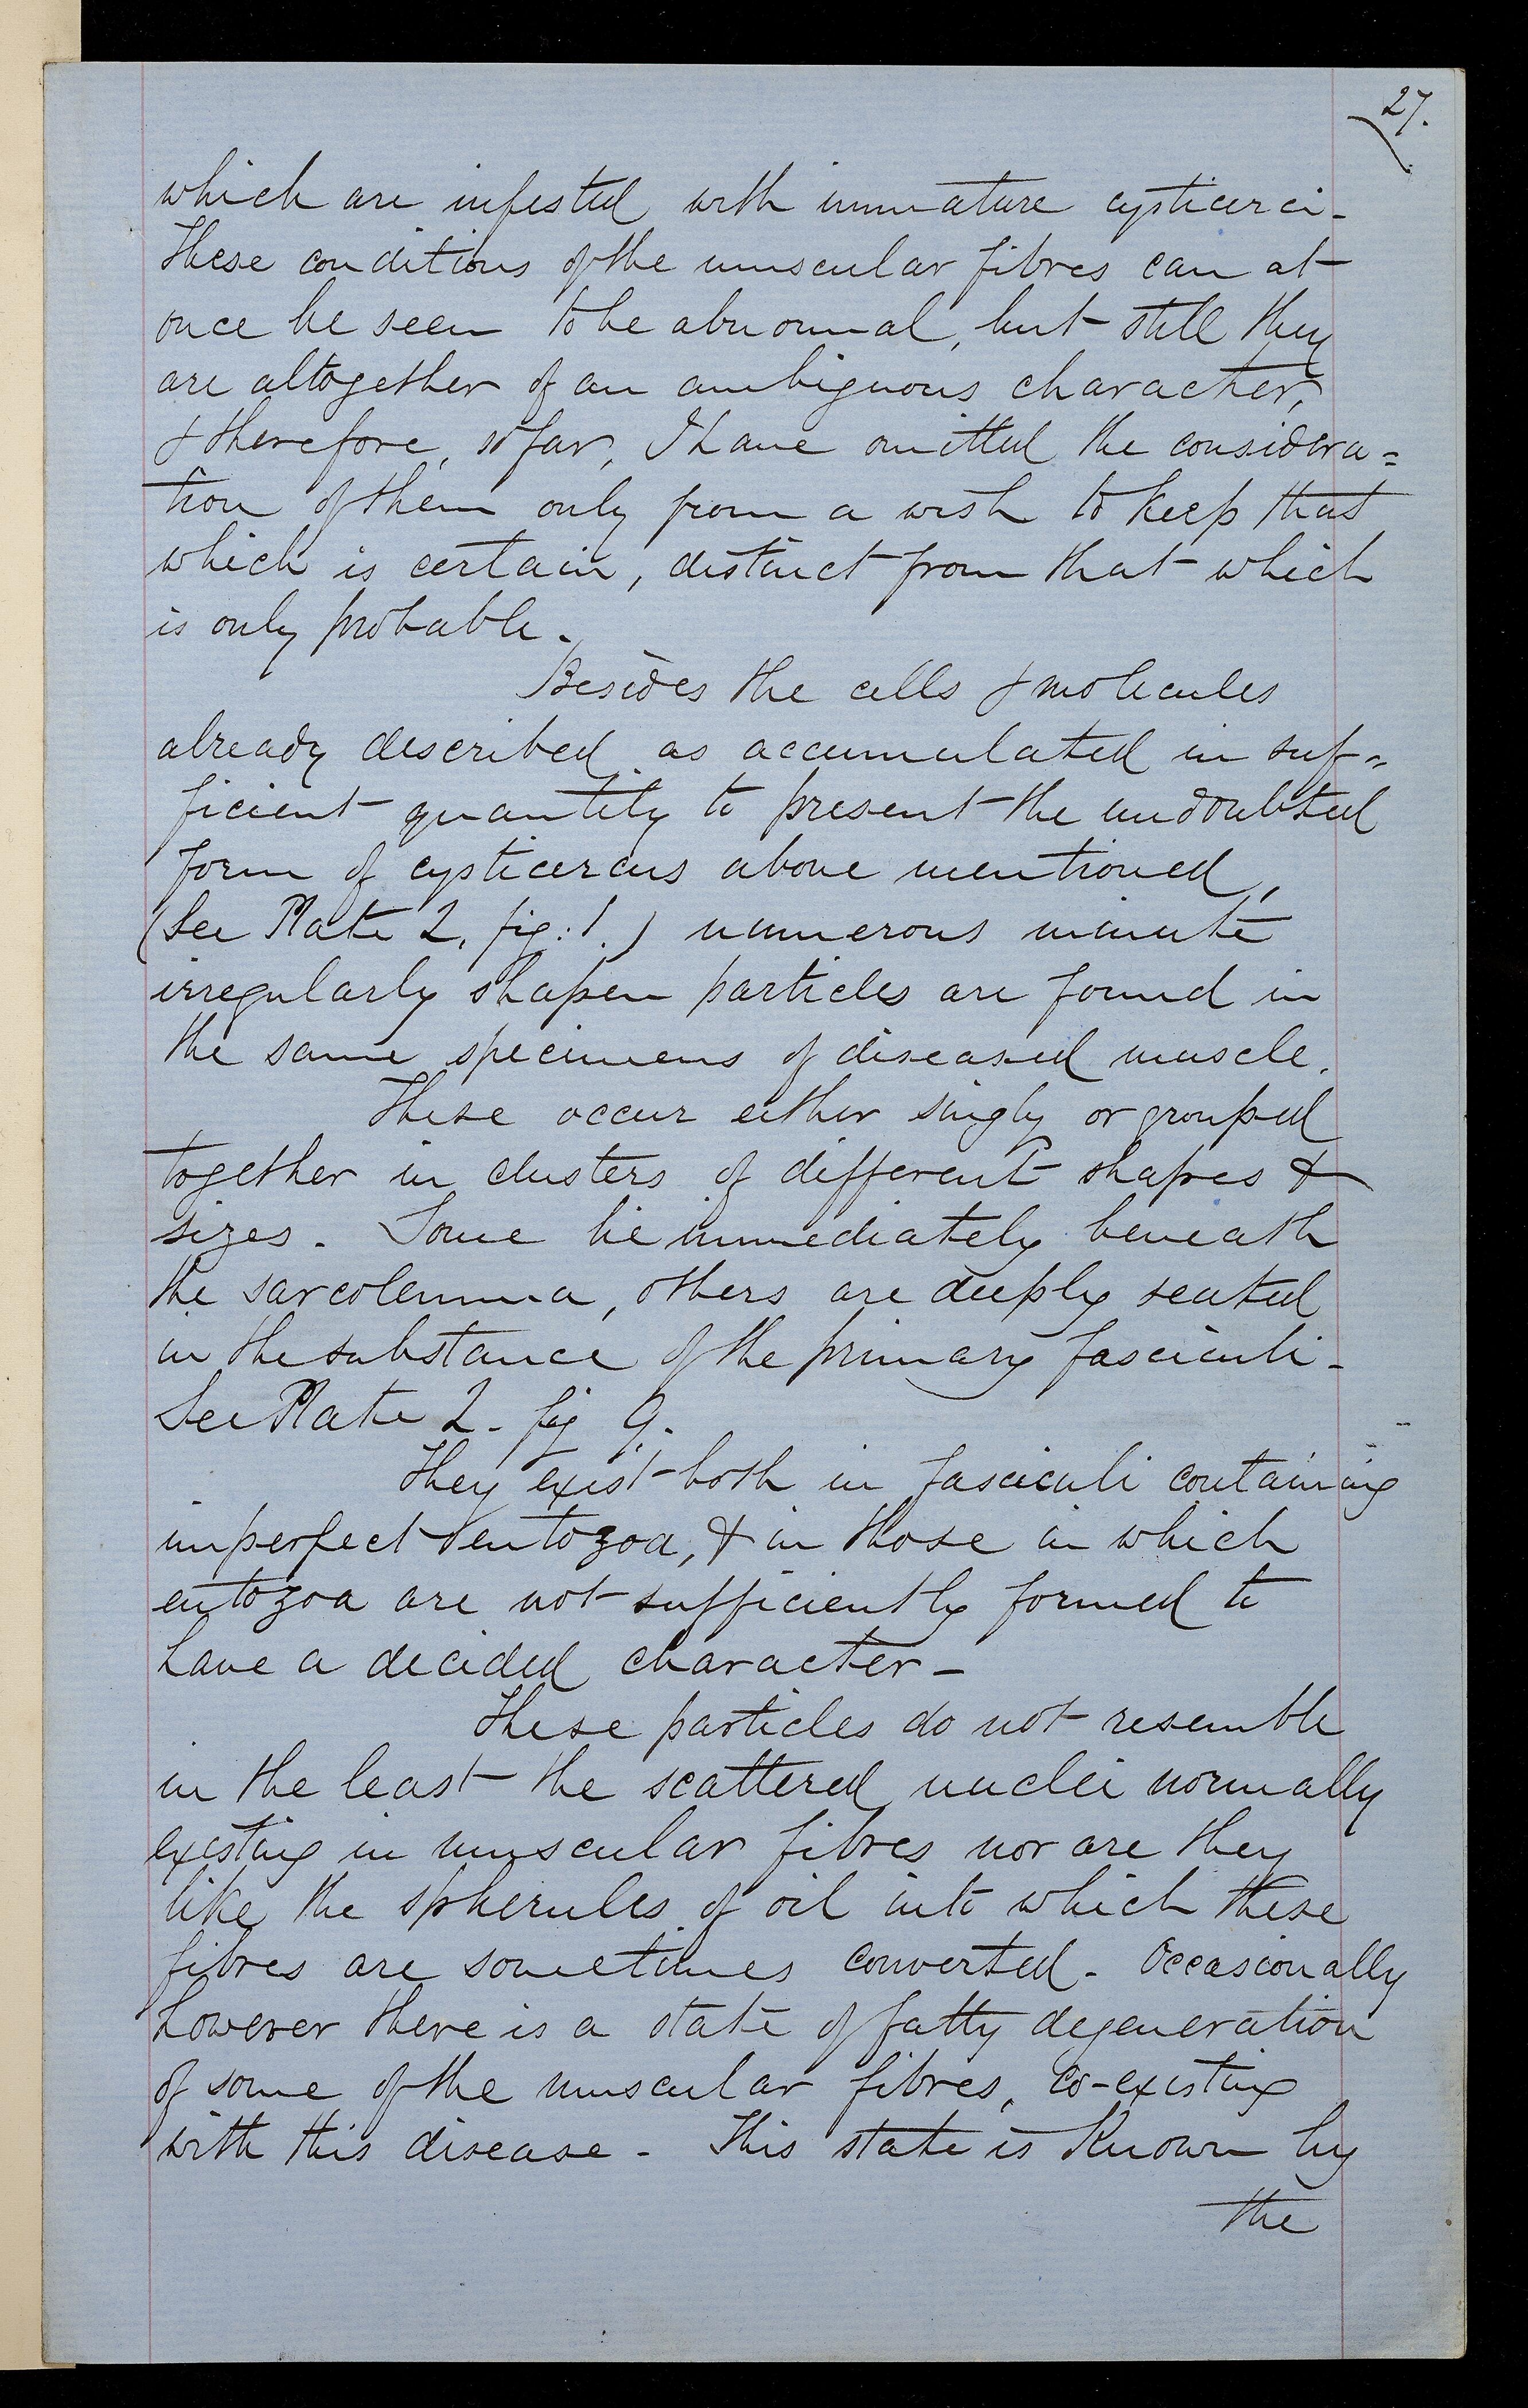 27.
which are infested with immature cysticerci-
These conditions of the muscular fibres can at
once be seen to be abnormal, but still they
are altogether of an ambiguous character,
& therefore, so far, I have omitted the considera=
tion of them only from a wish to keep that
which is certain, distinct from that which
is only probable.
Besides the cells & molecules
already described as accumulated in suf=
ficient quantity to present the undoubted
form of cysticercus above mentioned,
(See Plate 2, fig: 1.) numerous minute
irregularly shapen particles are found in
the same specimens of diseased muscle.
These occur either singly or grouped
together in clusters of different shapes &
sizes. Some lie immediately beneath
the sarcolemma, others are deeply seated
in the substance of the primary fasciculi-
See Plate 2- fig 9.
They exist both in fasciculi containing
imperfect entozoa, & in those in which
entozoa are not sufficiently formed to
have a decided character-
These particles do not resemble
in the least the scattered nuclei normally
existing in muscular fibres nor are they
like the spherules of oil into which these
fibres are sometimes converted- Occasionally
however there is a state of fatty degeneration
of some of the muscular fibres, co-existing
with this disease- This state is known by
the